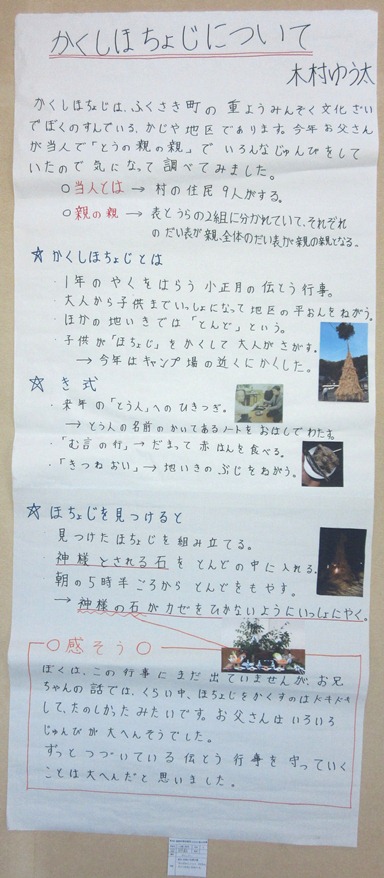 かくしほちょじについて
木村ゆう太
かくしほちょじは、ふくさき町の重ようみんぞく文化ざい
でぼくのすんでいる、かじや地区であります。今年お父さん
が当人で「とうの親の親」でいろんなじゅんびをして
いたので気になって調べてみました。
○当人とは→村の住民9人がする。
○親の親→表とうらの2組に分かれていて、それぞれ
のだい表が親、全体のだい表が親の親となる。
☆かくしほちょじとは
・1年のやくをはらう小正月の伝とう行事。
・大人から子供までいっしょになって地区の平おんをねがう。
・ほかの地いきでは「とんど」という。
・子供が「ほちょじ」をかくして大人がさがす。
→今年はキャンプ場の近くにかくした。
☆き式
・来年の「とう人」へのひきつぎ。
→とう人の名前のかいてあるノートをおはしでわたす。
・「む言の行」→だまって赤はんを食べる。
・「きつねおい」→地いきのぶじをねがう。
☆ほちょじを見つけると
見つけたほちょじを組み立てる。
神様とされる石をとんどの中に入れる。
朝の5時半ごろからとんどをもやす。
→神様の石がカゼをひかないようにいっしょにやく。
○感そう○
ぼくは、この行事にまだ出ていませんが、お兄
ちゃんの話では、くらい中、ほちょじをかくすのはドキドキ
して、たのしかったみたいです。お父さんはいろいろ
じゅんびが大へんそうでした。
ずっとつづいている伝とう行事を守っていく
ことは大へんだと思いました。